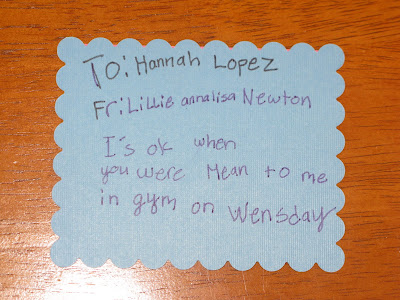 To: Hannah Lopez
Fr: Lillie annalisa Newton
I's ok when
you were Mean to me
in gym on Wensday